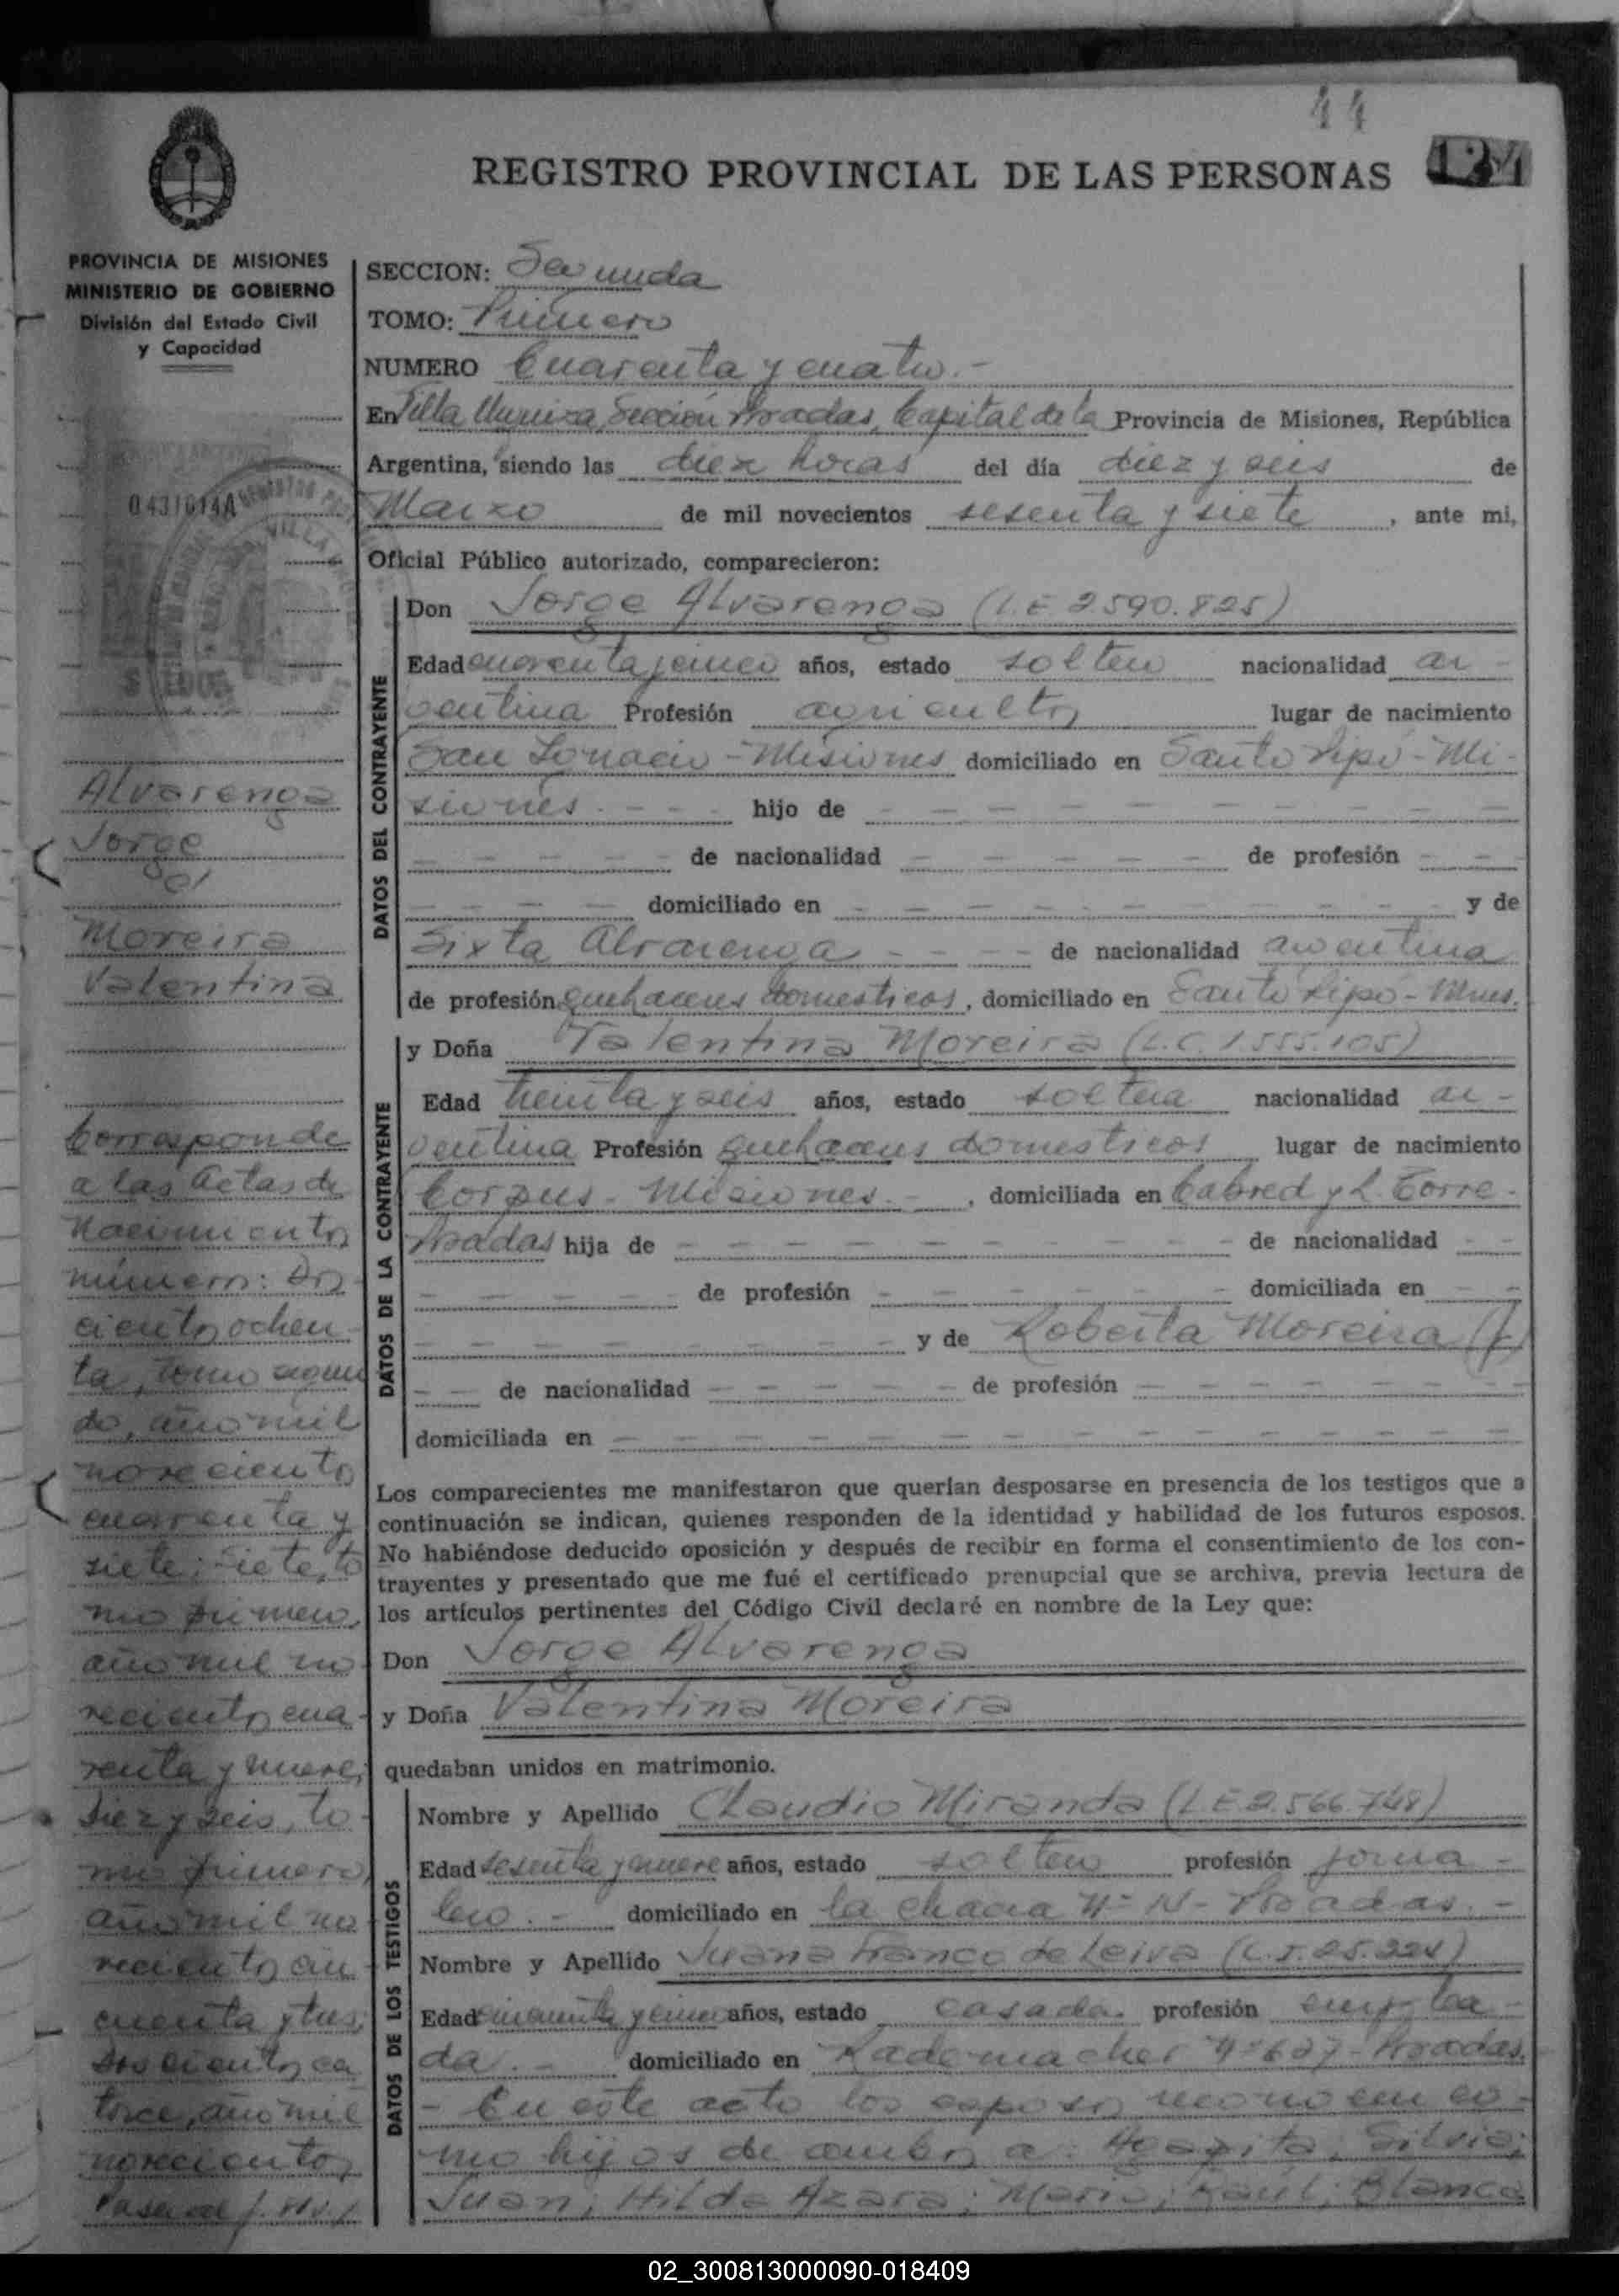 44
REGISTRO PROVINCIAL DE LAS PERSONAS
PROVINCIA DE MISIONES
MINISTERIO DE GOBIERNO
División del Estado Civil
y Capacidad
0431014A
Alvarenga
Jorge
c/
Moreira
Valentina
Corresponde
a las actas de
Nacimientos
número: Dos
cientos ochen
ta, tomo segun
do, año mil
novecientos
cuarenta y
siete; siete, to
mo primero,
año mil no
vecientos cua
renta y nueve;
diez y seis, to
mo primero,
año mil no
vecientos cin
cuenta y tres;
doscientos ca
torce, año mil
novecientos
SECCION: Segunda
TOMO: Primero
NUMERO Cuarenta y cuatro.-
En Villa Urquiza, Sección Posadas, Capital de la Provincia de Misiones, República
Argentina, siendo las diez horas del día diez y seis de
Marzo de mil novecientos sesenta y siete, ante mi,
Oficial Público autorizado, comparecieron:
DATOS DEL CONTRAYENTE
Don Jorge Alvarenga (L.E 2590.825)
Edad cuarenta y cinco años, estado soltero nacionalidad ar-
gentina Profesión agricultor lugar de nacimiento
San Ignacio - Misiones domiciliado en Santo Pipó - Mi-
siones. - - - hijo de - - - - - - - -
- - - - - de nacionalidad - - - - - de profesión - -
- - - - domiciliado en - - - - - - - - y de
Sixta Alvarenga - - - - de nacionalidad argentina
de profesión quehaceres domesticos, domiciliado en Santo Pipó - Mnes.
DATOS DE LA CONTRAYENTE
y Doña Valentina Moreira (L.C. 1.555.105)
Edad treinta y seis años, estado soltera nacionalidad ar-
gentina Profesión quehaceres domesticos lugar de nacimiento
Corpus - Misiones. -, domiciliada en Cabred y L. Torre -
Posadas hija de - - - - - - - - de nacionalidad - -
- - - - - de profesión - - - - - domiciliada en - -
- - - - - - - - y de Roberta Moreira (f)
- - de nacionalidad - - - - - de profesión - - - - - -
domiciliada en - - - - - - - - - - - -
Los comparecientes me manifestaron que querían desposarse en presencia de los testigos que a
continuación se indican, quienes responden de la identidad y habilidad de los futuros esposos.
No habiéndose deducido oposición y después de recibir en forma el consentimiento de los con-
trayentes y presentado que me fué el certificado prenupcial que se archiva, previa lectura de
los artículos pertinentes del Código Civil declaré en nombre de la Ley que:
Don Jorge Alvarenga
y Doña Valentina Moreira
quedaban unidos en matrimonio.
DATOS DE LOS TESTIGOS
Nombre y Apellido Claudio Miranda (L.E 2.566.748)
Edad sesenta y nueve años, estado soltero profesión jorna-
lero. - domiciliado en la chacra Posadas. -
Nombre y Apellido Juana Franco de Leiva (C.I. 25.224)
Edad cincuenta y cinco años, estado casada. profesión emplea-
da. - domiciliado en Rademacher Nº 627 - Posadas.
- En este acto los esposos reconocen co-
mo hijos de ambos a: Agapita; Silvia;
Juan; Hilda Azara; Mario; Raúl; Blanca
02_300813000090-018409